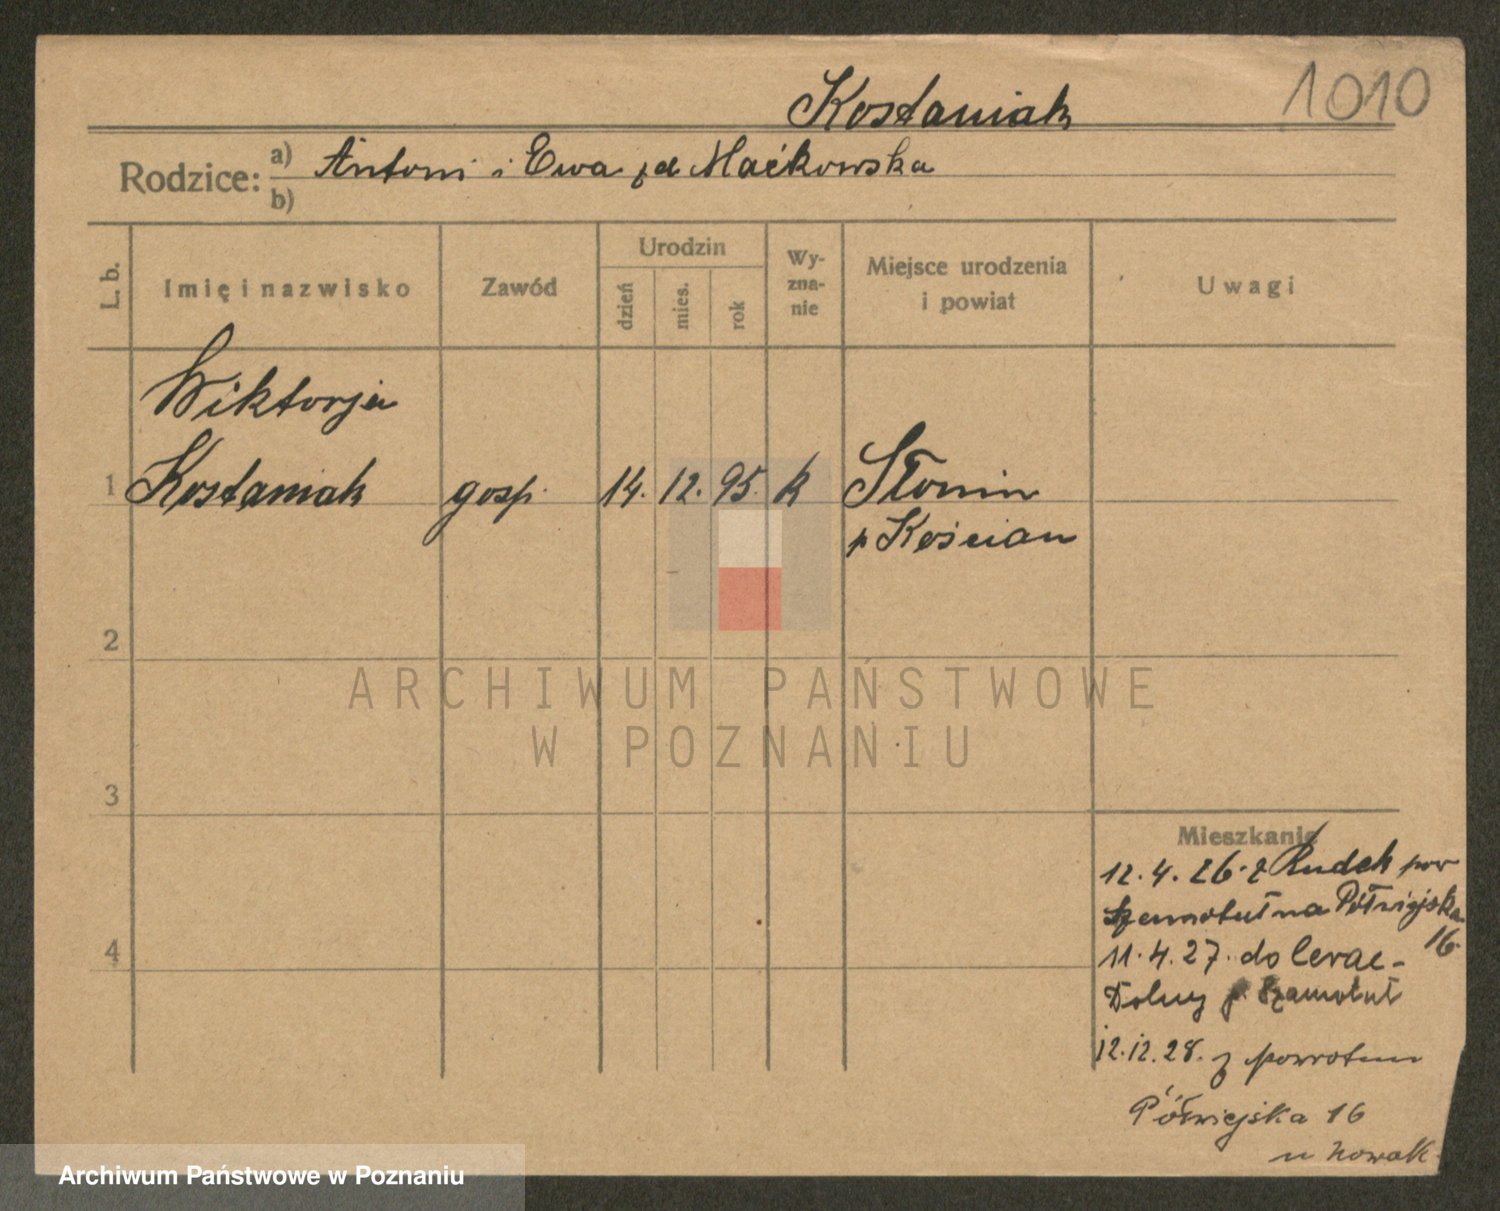 Kostaniak 1010
Rodzice: a) Antoni i Ewa zd Maćkowska
b)
L. b. Imię i nazwisko Zawód Urodzin dzień mies. rok Wy-zna-nie Miejsce urodzenia i powiat Uwagi
Wiktorja
1 Kostaniak gosp. 14. 12. 95. k Słonin
p Kościan
2
ARCHIWUM PAŃSTWOWE
W POZNANIU
3
Mieszkanie
12.4.26. z Rudek pow
Szamotuł na Półwiejska
16.
4
11.4.27. do
Dolny p. Szamotuł
12.12.28. z powrotem
Półwiejska 16
u Nowak
Archiwum Państwowe w Poznaniu